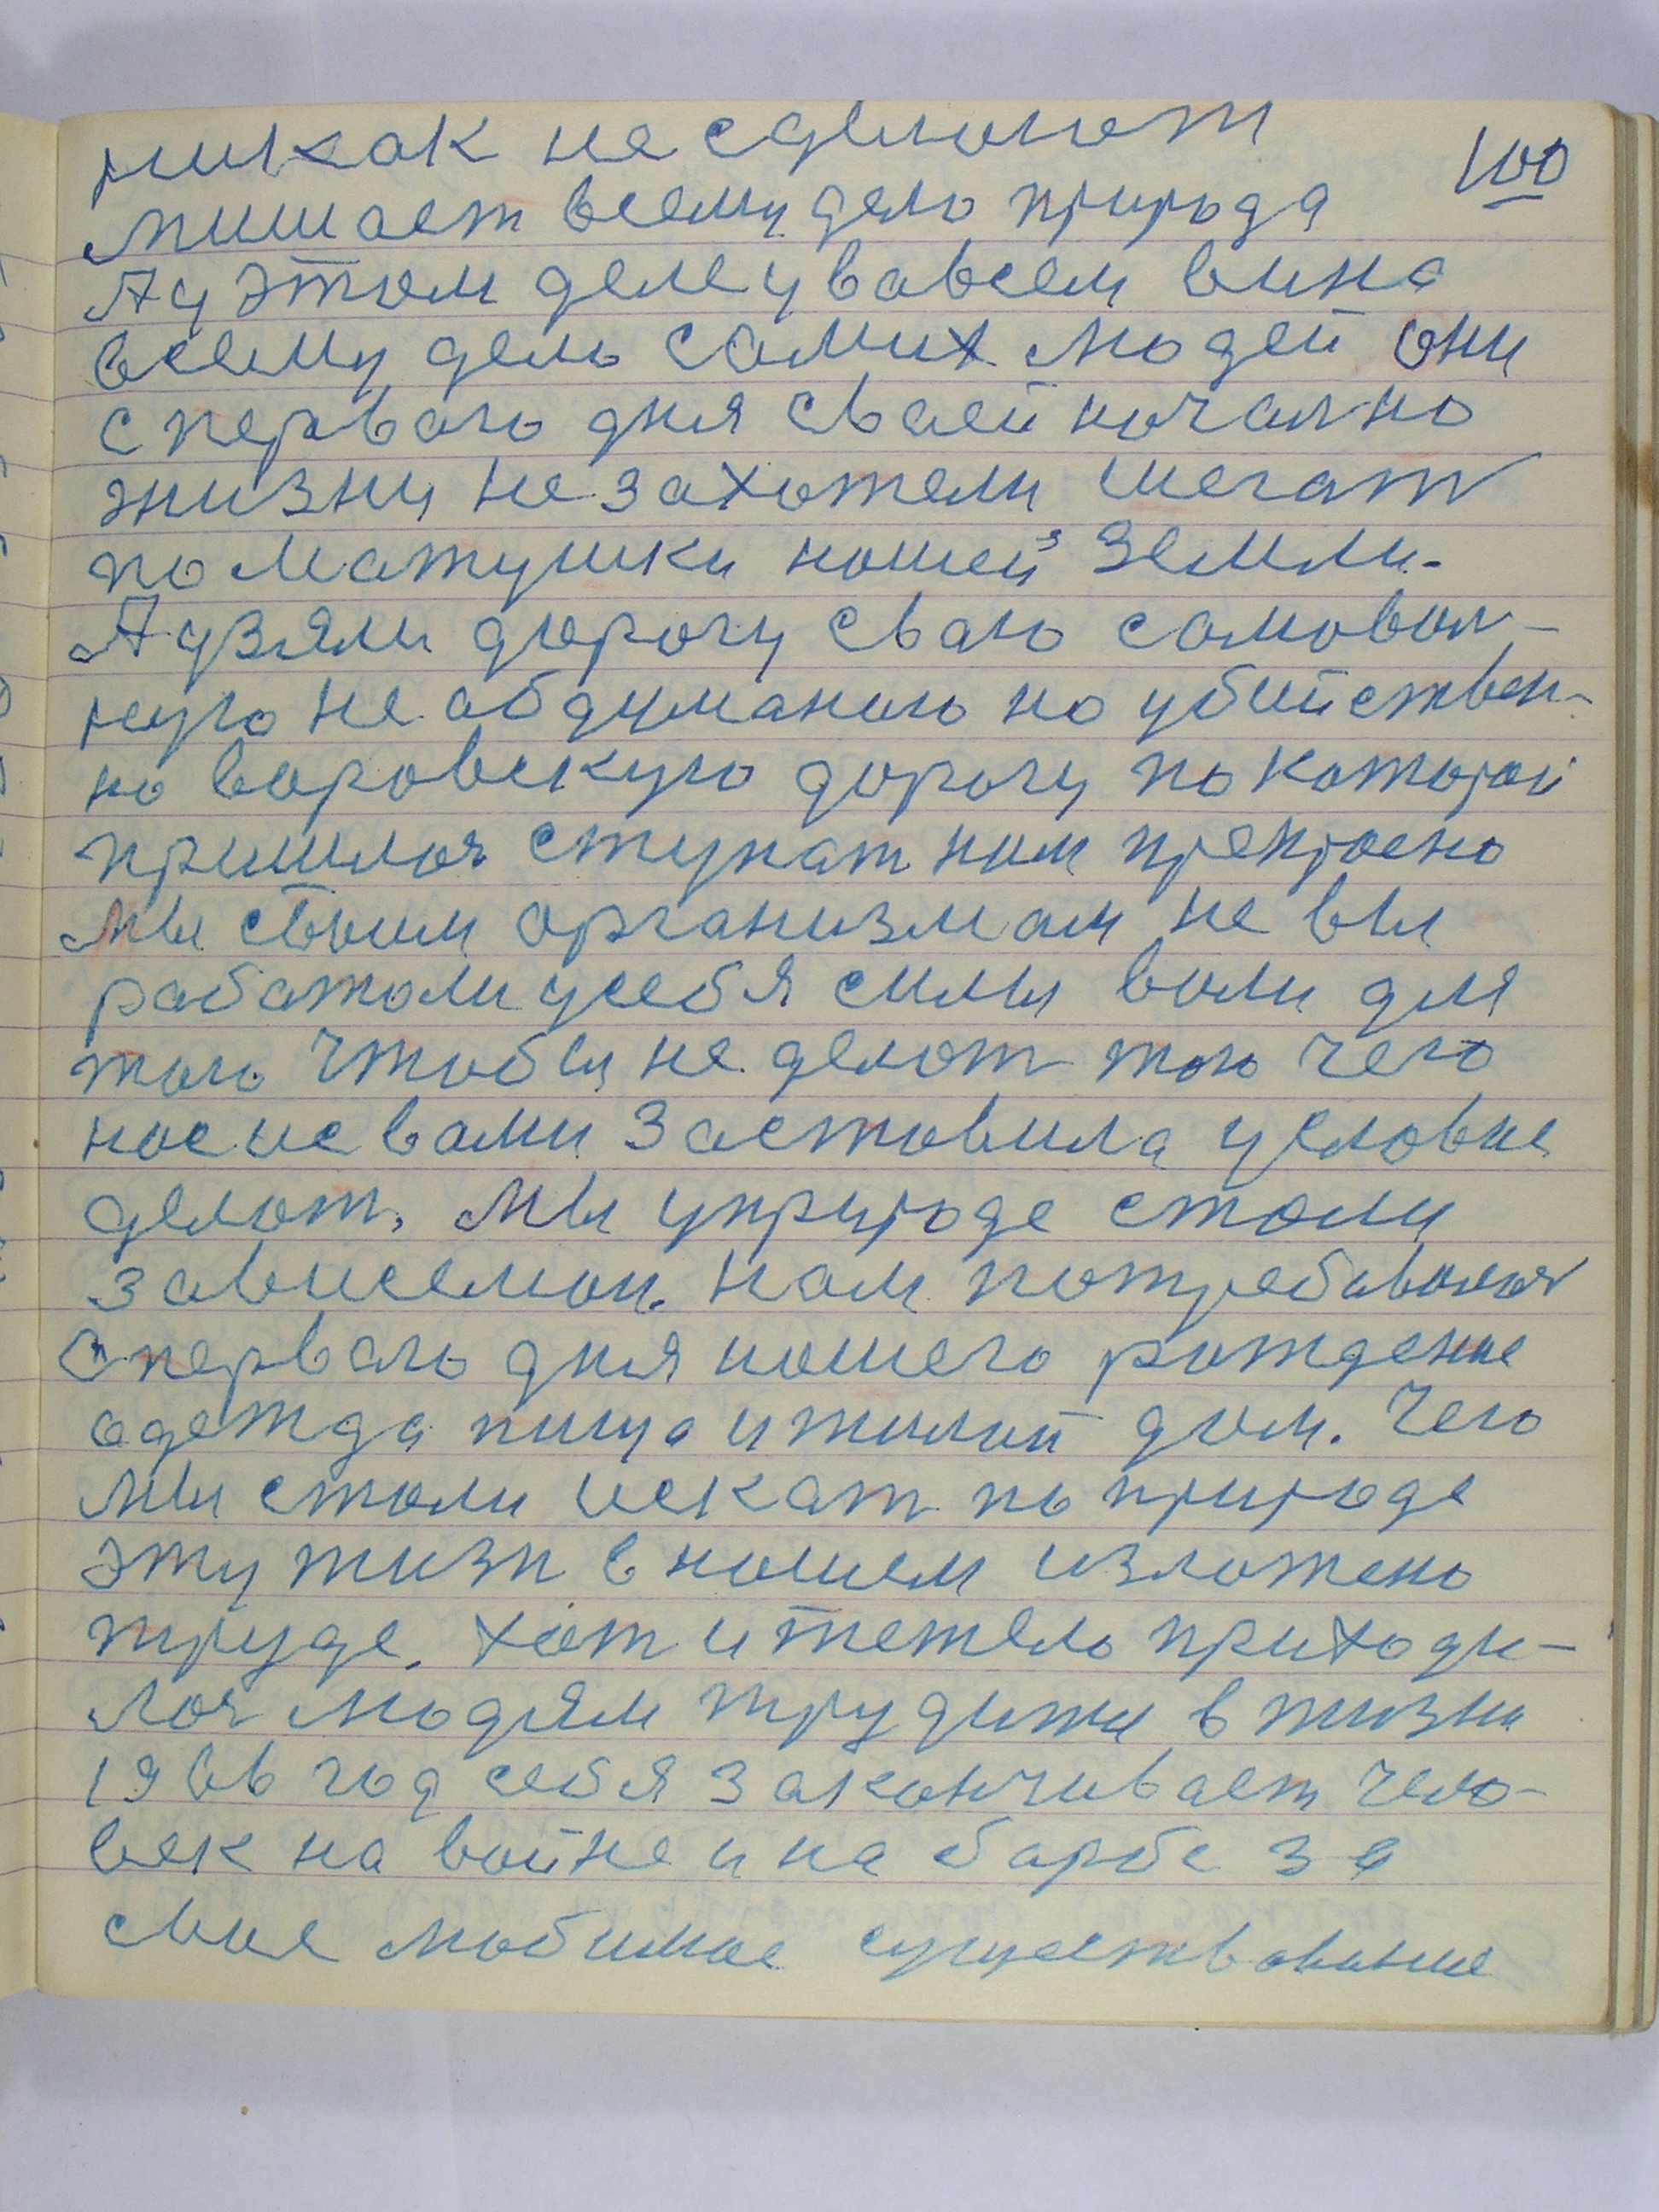 никак не сделают
100
мишает всему дело природа
А у этом деле у вавсем вина
всему дело самих людей они
с перваго дня сваей начално
жизни не захотели шегат
по матушки нашей земли.
А узяли дорогу сваю самовол-
ную не абдуманаю но убийствен-
но варовскую дорогу по каторой
пришлоя ступат нам прекрасно
мы своим организмам не вы
работали усебя силы воли для
того чтобы не делат того чего
нас и с вами заставила условие
делат. Мы уприроде стали
зависемои. нам потребавалоя
С перваго дня нашего рождение
одежда пища и жилой дом. Чего
мы стали искат по природе
эту жизн в нашем изложено
труде. хот и тежело приходи-
лоя людям трудится в жизни
1966 год себя заканчивает чело-
век на войне и на барбе за
свое любимое существование